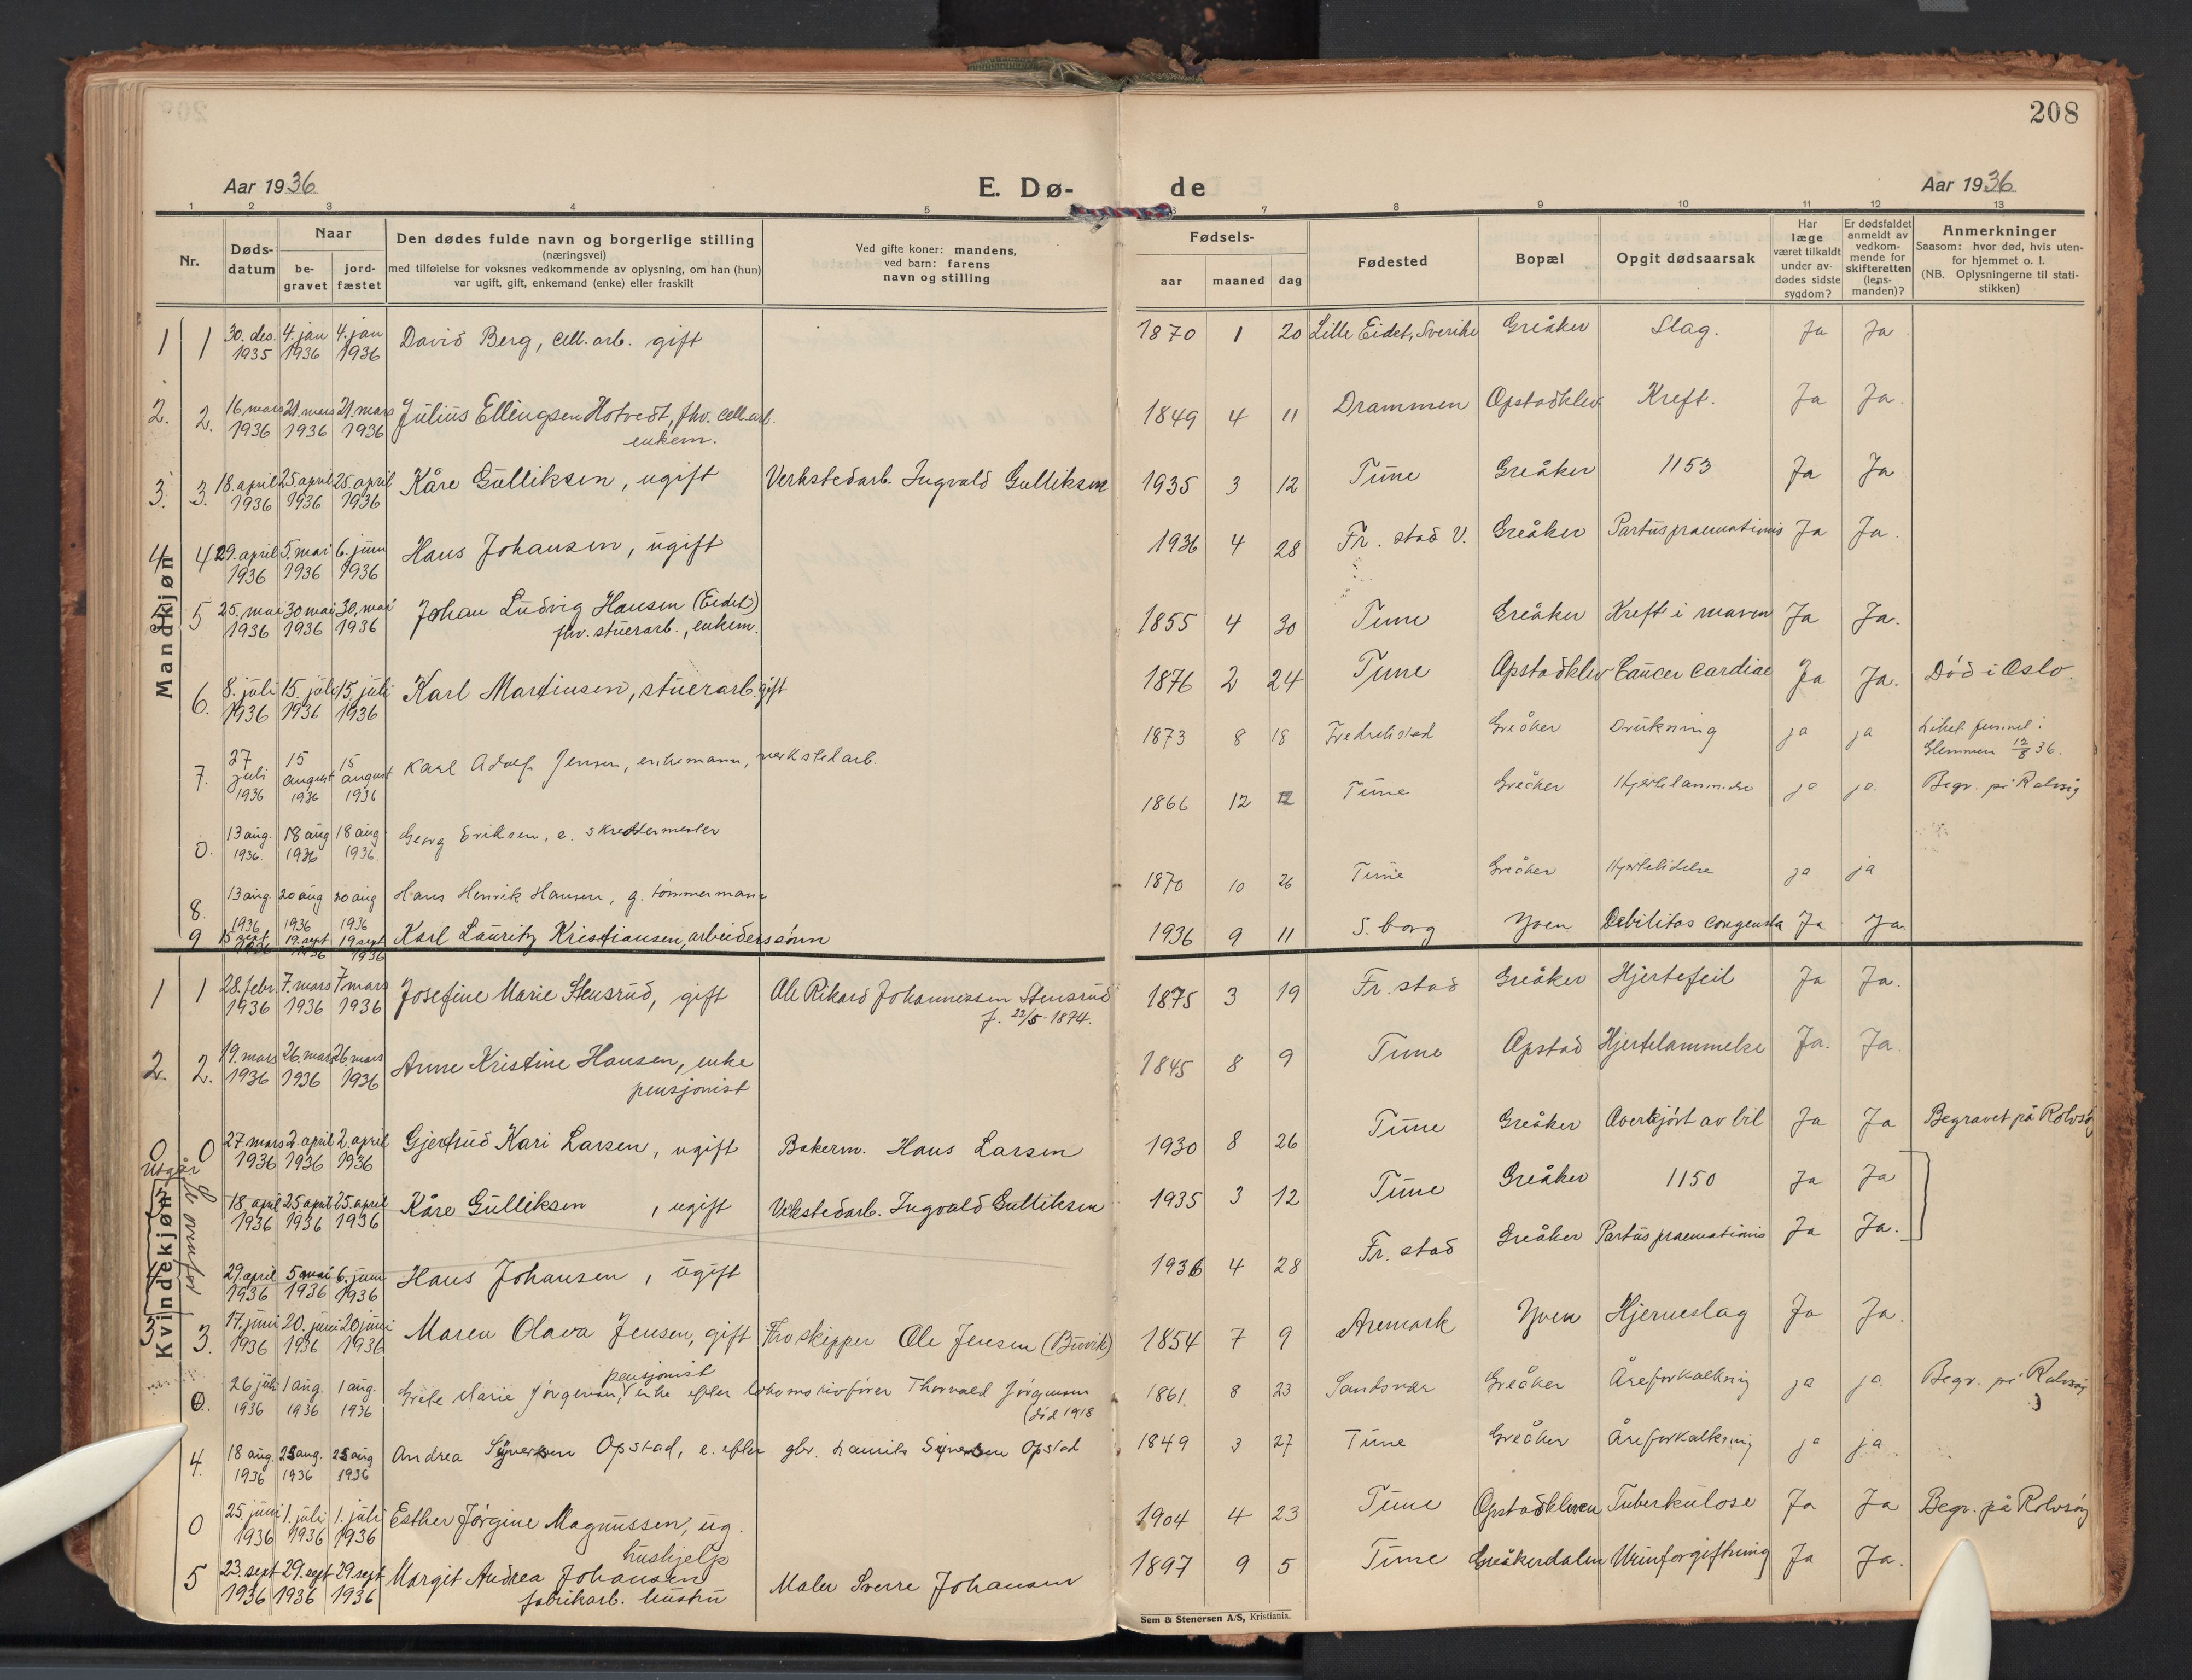 208
Aar 1936
E. Dø- de
Aar 1936
1 2 3 4 5 6 7 8 9 10 11 12 13
Nr.
Døds-
datum
Naar
be-
gravet
jord-
fæstet
Den dødes fulde navn og borgerlige stilling
(næringsvei)
med tilføielse for voksnes vedkommende av oplysning, om han (hun)
var ugift, gift, enkemand (enke) eller fraskilt
Ved gifte koner: mandens,
ved barn: farens
navn og stilling
Fødsels-
aar maaned dag
Fødested
Bopæl
Opgit dødsaarsak
Har
læge
været tilkaldt
under av-
dødes sidste
sygdom?
Er dødsfaldet
anmeldt av
vedkom-
mende for
skifteretten
(lens-
manden)?
Anmerkninger
Saasom: hvor død, hvis uten-
for hjemmet o. l.
(NB. Oplysningerne til stati-
stikken)
Mandkjøn
1 1 30. des. 1935 4. jan 1936 4. jan 1936 David Berg, cell. arb. gift 1870 1 20 Lille Eidet, Sverike Greåker Slag. Ja Ja
2. 2. 16 mars 1936 21. mars 1936 21. mars 1936 Julius Ellingsen Hotvedt, fhv. cell. arb. enkem. 1849 4 11 Drammen Opstadklev. Kreft. Ja Ja.
3. 3. 18 april 1936 25. april 1936 25. april 1936 Kåre Gulliksen, ugift Verkstedarb. Ingvald Gulliksen 1935 3 12 Tune Greåker 1153 Ja Ja
4 4 29. april 1936 5. mai 1936 6. juni 1936 Hans Johansen, ugift 1936 4 28 Fr. stad V. Greåker Partus praematurus Ja Ja.
5 5 25. mai 1936 30 mai 1936 30. mai 1936 Johan Ludvig Hansen (Eidet) fhv. stuerarb., enkem. 1855 4 30 Tune Greåker Kreft i maven Ja Ja.
6. 8. juli 1936 15. juli 1936 15. juli 1936 Karl Martinsen, stuerarb. gift 1876 2 24 Tune Opstadklev Cancer cardiae Ja Ja. Död i Oslo.
7. 27 juli 1936 15 august 1936 15 august 1936 Karl Adolf Jensen, enkemann, verkstedarb. 1873 8 18 Fredrikstad Greåker Drukning ja ja Liket funnet i Glemmen 12/8 36.
0. 13 aug. 1936. 18 aug 1936 18 aug 1936. Georg Eriksen, e. skreddermester 1866 12 Tune Greåker Hjertelammelse ja ja. Begr. på Rolvsøy
8. 13 aug. 1936 20 aug 1936 20 aug 1936 Hans Henrik Hansen, g. tømmermann 1870 10 26 Tune Greåker Hjertelidelse ja ja
9 15 sept 1936 19. sept 1936 19 sept 1936 Karl Lauritz Kristiansen, arbeiderssønn 1936 9 11 S. borg Yven Debilitas congenita Ja Ja.
Kvindekjøn
1 1 28. febr. 1936 7. mars 1936 7 mars 1936 Josefine Marie Stensrud, gift Ole Rikard Johannessen Stensrud f. 22/5-1874. 1875 3 19 Fr. stad Greåker Hjertefeil Ja Ja.
2. 2. 19. mars 1936 26. mars 1936 26. mars 1936 Anne Kristine Hansen, enke pensjonist 1845 8 9 Tune Opstad Hjertelammelse Ja. Ja.
0 0 27. mars 1936 2. april 1936 2. april 1936 Gjertrud Kari Larsen, ugift Bakerm. Hans Larsen 1930 8 26 Tune Greåker Overkjørt av bil Ja Ja Begravet på Rolvsøy
Utgår
Se ovenfor
3 18. april 1936 25 april 1936 25. april 1936 Kåre Gulliksen, ugift Vekstedarb. Ingvald Gulliksen 1935 3 12 Tune Greåker 1150 Ja Ja
4 29. april 1936 5 mai 1936 6. juni 1936 Hans Johansen, ugift 1936 4 28 Fr. stad Greåker Partus praematurus Ja Ja.
5 3. 17. juni 1936 20. juni 1936 20 juni 1936 Maren Olava Jensen, gift Fhv skipper Ole Jensen (Buvik) 1854 7 9 Aremark Yven Hjerneslag Ja Ja.
0. 26 juli 1936 1 aug. 1936 1 aug. 1936 Grete Marie Jørgensen, pensjonist enke efter lokomotivfører Thorvald Jørgensen (død 1918 1861. 8 23 Sandsvær Greåker Åreforkalkning ja ja. Begr. på Rolvsøy
4. 18 aug. 1936 25 aug. 1936 25 aug 1936 Andrea Syversen Opstad, e. efter gbr. Laurits Syversen Opstad 1849 3 27 Tune Greåker Åreforkalkning ja ja.
0 25. juni 1936 1. juli 1936 1. juli 1936 Esther Jørgine Magnussen, ug. hushjelp 1904 4 23 Tune Opstadkleven Tuberkulose Ja Ja Begr. på Rolvsøy
5 23. sept 1936 29. sept 1936 29. sept 1936 Margit Andrea Johansen fabrikarb. hustru Maler Sverre Johansen 1897 9 5 Tune Greåkerdalen Urinforgiftning Ja Ja.
Sem & Stenersen A/S, Kristiania.